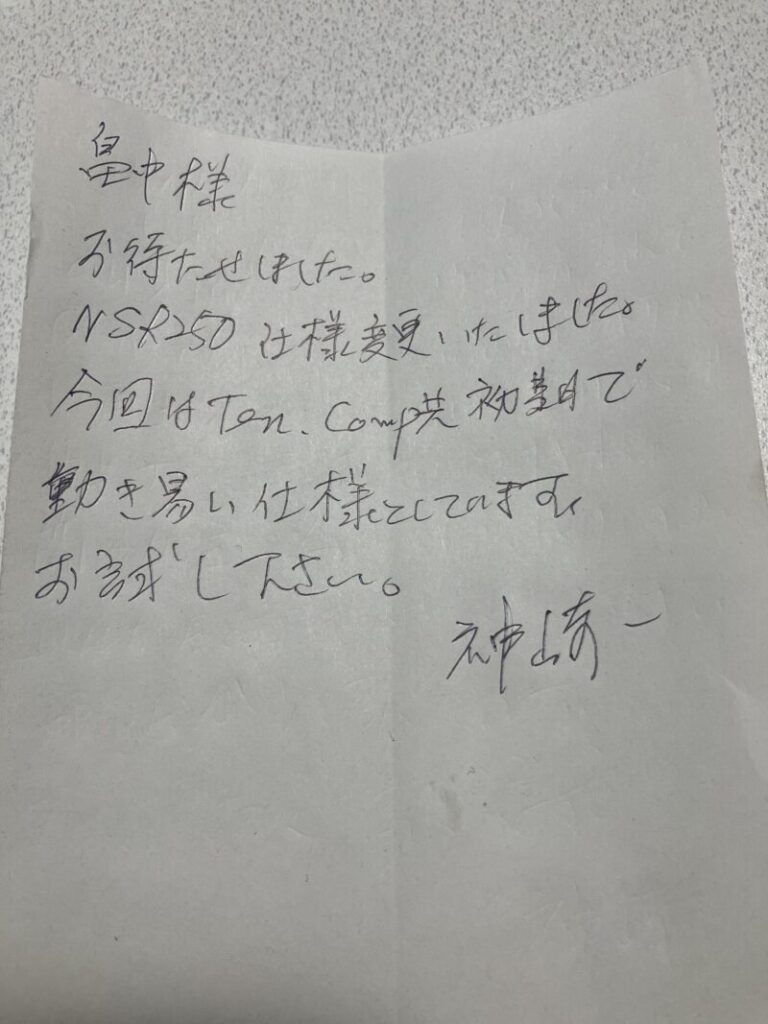 畠中様
お待たせしました。
NSR250 仕様変更いたしました。
今回は Ten. Comp共 初期で
動き易い仕様としてます、
お試し下さい。
神崎一